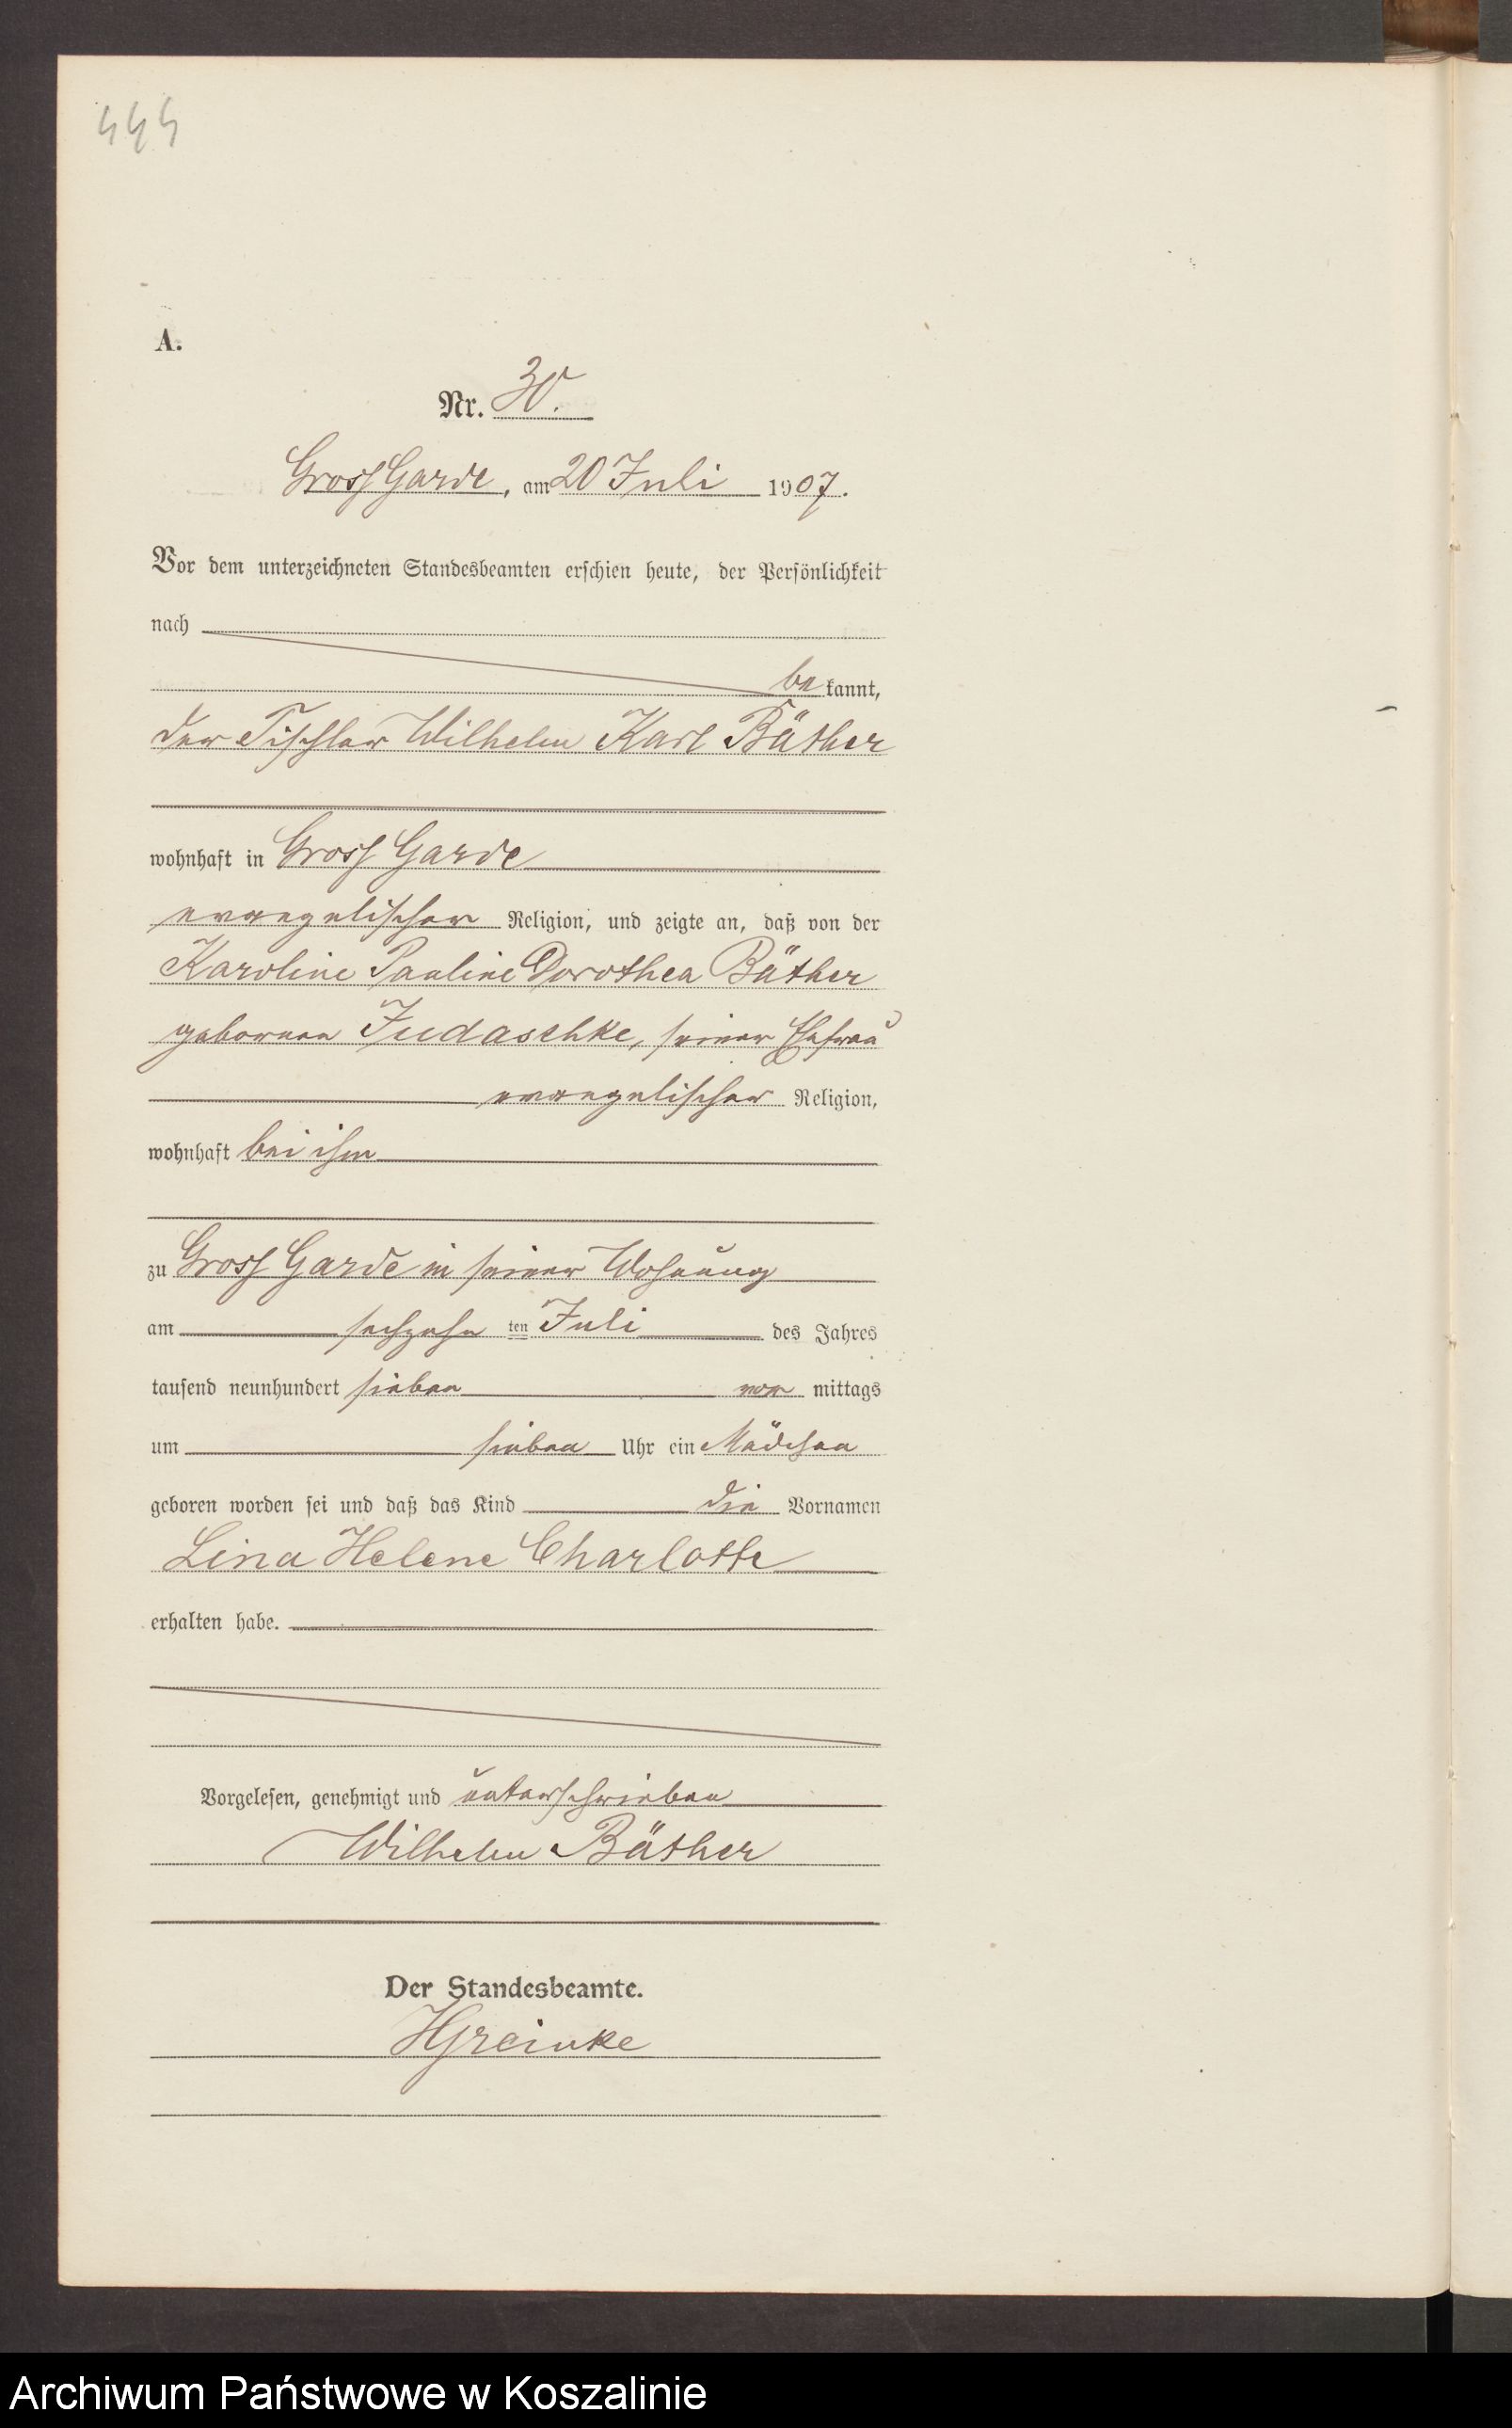 444
A.
Nr. 30.
Gross Garde, am 20 Juli 1907.
Vor dem unterzeichneten Standesbeamten erschien heute, der Persönlichkeit
nach
be kannt,
der Tischler Wilhelm Karl Bäther
wohnhaft in Gross Garde
evangelischer Religion, und zeigte an, daß von der
Karoline Pauline Dorothea Bäther
gebornen Judaschke, seiner Ehefrau
evangelischer Religion,
wohnhaft bei ihm
zu Gross Garde in seiner Wohnung
am sechzehn ten Juli des Jahres
tausend neunhundert sieben vor mittags
um sieben Uhr ein Mädchen
geboren worden sei und daß das Kind die Vornamen
Lina Helene Charlotte
erhalten habe.
Vorgelesen, genehmigt und unterschrieben
Wilhelm Bäther
Der Standesbeamte.
Archiwum Państwowe w Koszalinie